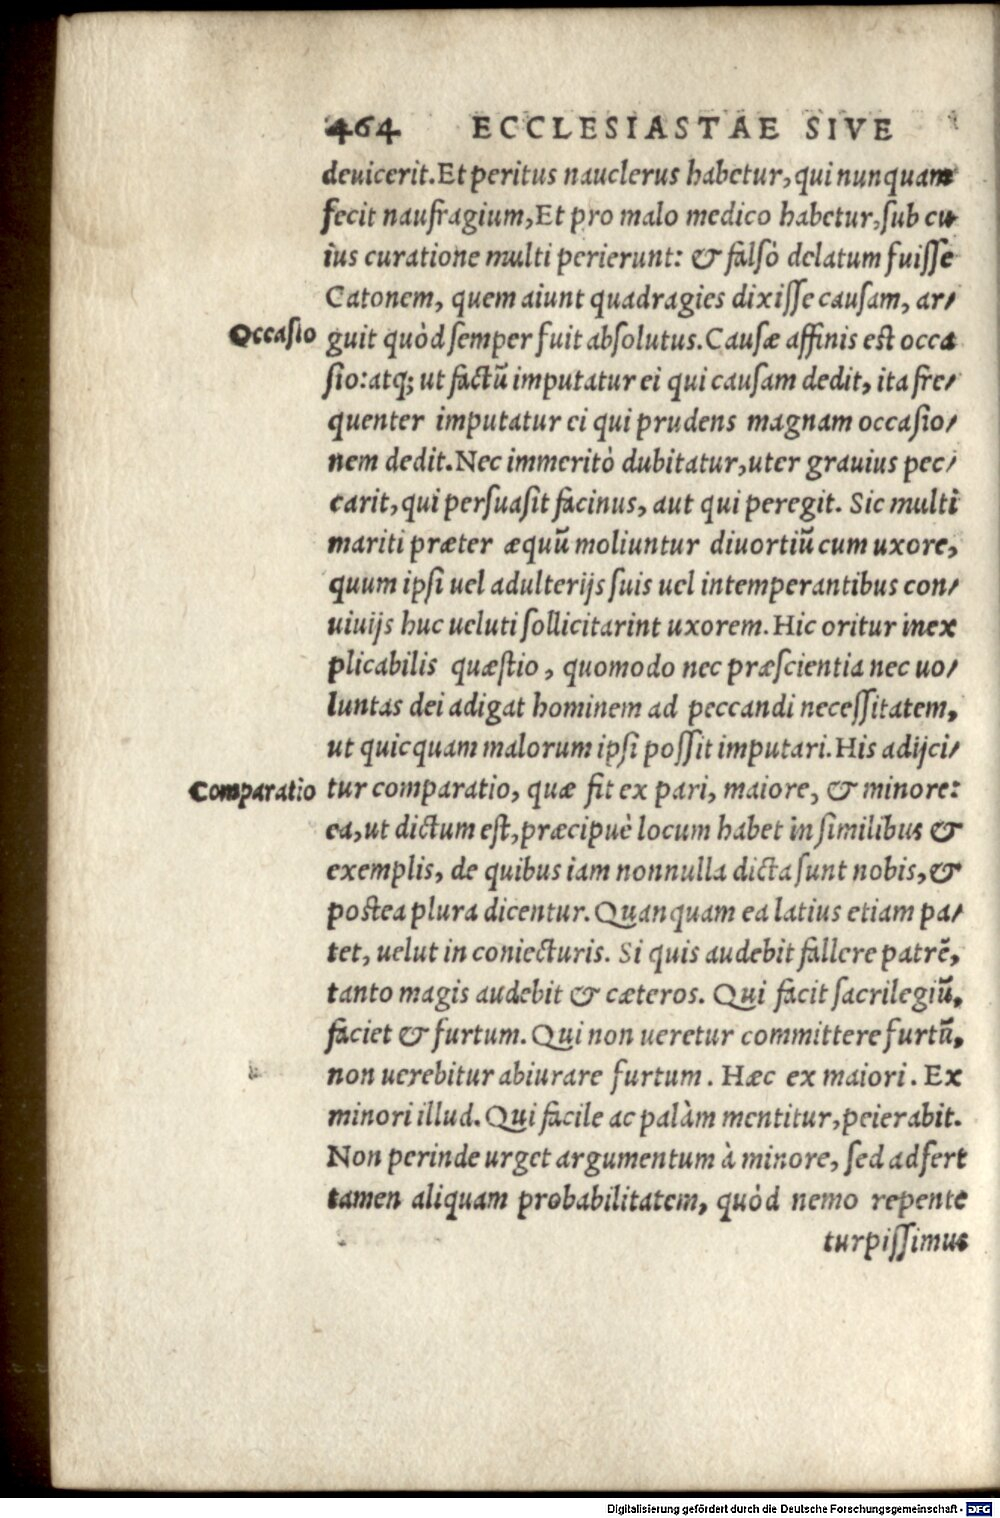 464 ECCLESIASTAE SIVE
deuicerit. Et peritus nauclerus habetur, qui nunquam
fecit naufragium, Et pro malo medico habetur, sub cu-
ius curatione multi perierunt: & falsò delatum fuisse
Catonem, quem aiunt quadragies dixisse causam, ar/
Occasio
guit quòd semper fuit absolutus. Causæ affinis est occa
sio: atq; ut factū imputatur ei qui causam dedit, ita fre/
quenter imputatur ei qui prudens magnam occasio/
nem dedit. Nec immeritò dubitatur, uter grauius pec/
carit, qui persuasit facinus, aut qui peregit. Sic multi
mariti præter æquū moliuntur diuortiū cum uxore,
quum ipsi uel adulterijs suis uel intemperantibus con/
uiuijs huc ueluti sollicitarint uxorem. Hic oritur inex
plicabilis quæstio, quomodo nec præscientia nec uo/
luntas dei adigat hominem ad peccandi necessitatem,
ut quicquam malorum ipsi possit imputari. His adijci/
Comparatio
tur comparatio, quæ fit ex pari, maiore, & minore:
ea, ut dictum est, præcipuè locum habet in similibus &
exemplis, de quibus iam nonnulla dicta sunt nobis, &
postea plura dicentur. Quanquam ea latius etiam pa/
tet, uelut in coniecturis. Si quis audebit fallere patrē,
tanto magis audebit & cæteros. Qui facit sacrilegiū,
faciet & furtum. Qui non ueretur committere furtū,
non uerebitur abiurare furtum. Hæc ex maiori. Ex
minori illud. Qui facile ac palàm mentitur, peierabit.
Non perinde urget argumentum à minore, sed adfert
tamen aliquam probabilitatem, quòd nemo repente
turpissimus
Digitalisierung gefördert durch die Deutsche Forschungsgemeinschaft - DFG